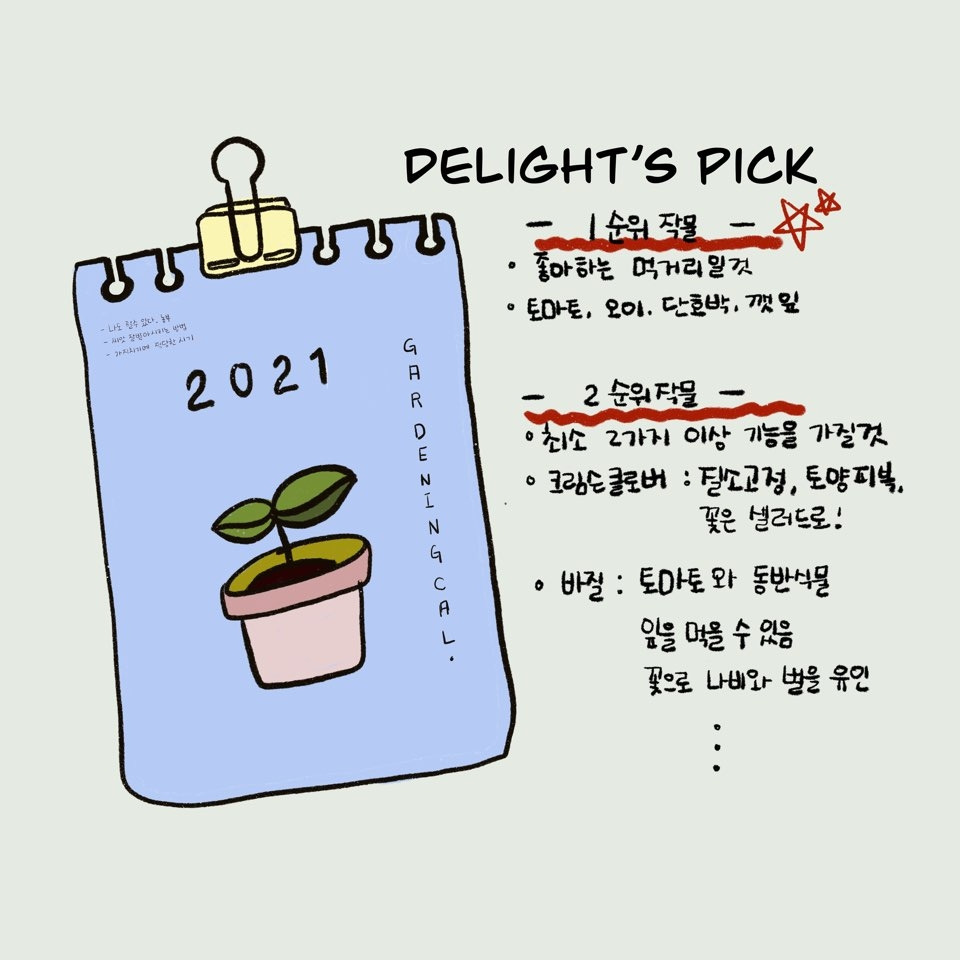 DELIGHT'S PICK
- 1순위 작물 -
• 좋아하는 먹거리일것
• 토마토, 오이, 단호박, 깻잎
- 2순위작물 -
• 최소 2가지 이상 기능을 가질것
• 크림슨클로버 : 질소고정, 토양피복,
꽃은 샐러드로!
• 바질 : 토마토와 동반식물
잎을 먹을 수 있음
꽃으로 나비와 벌을 유인
- 나도 할수 있다. 농부
- 씨앗 장만하시는 방법
- 가지치기에 적당한 시기
2021
GARDENING CAL.